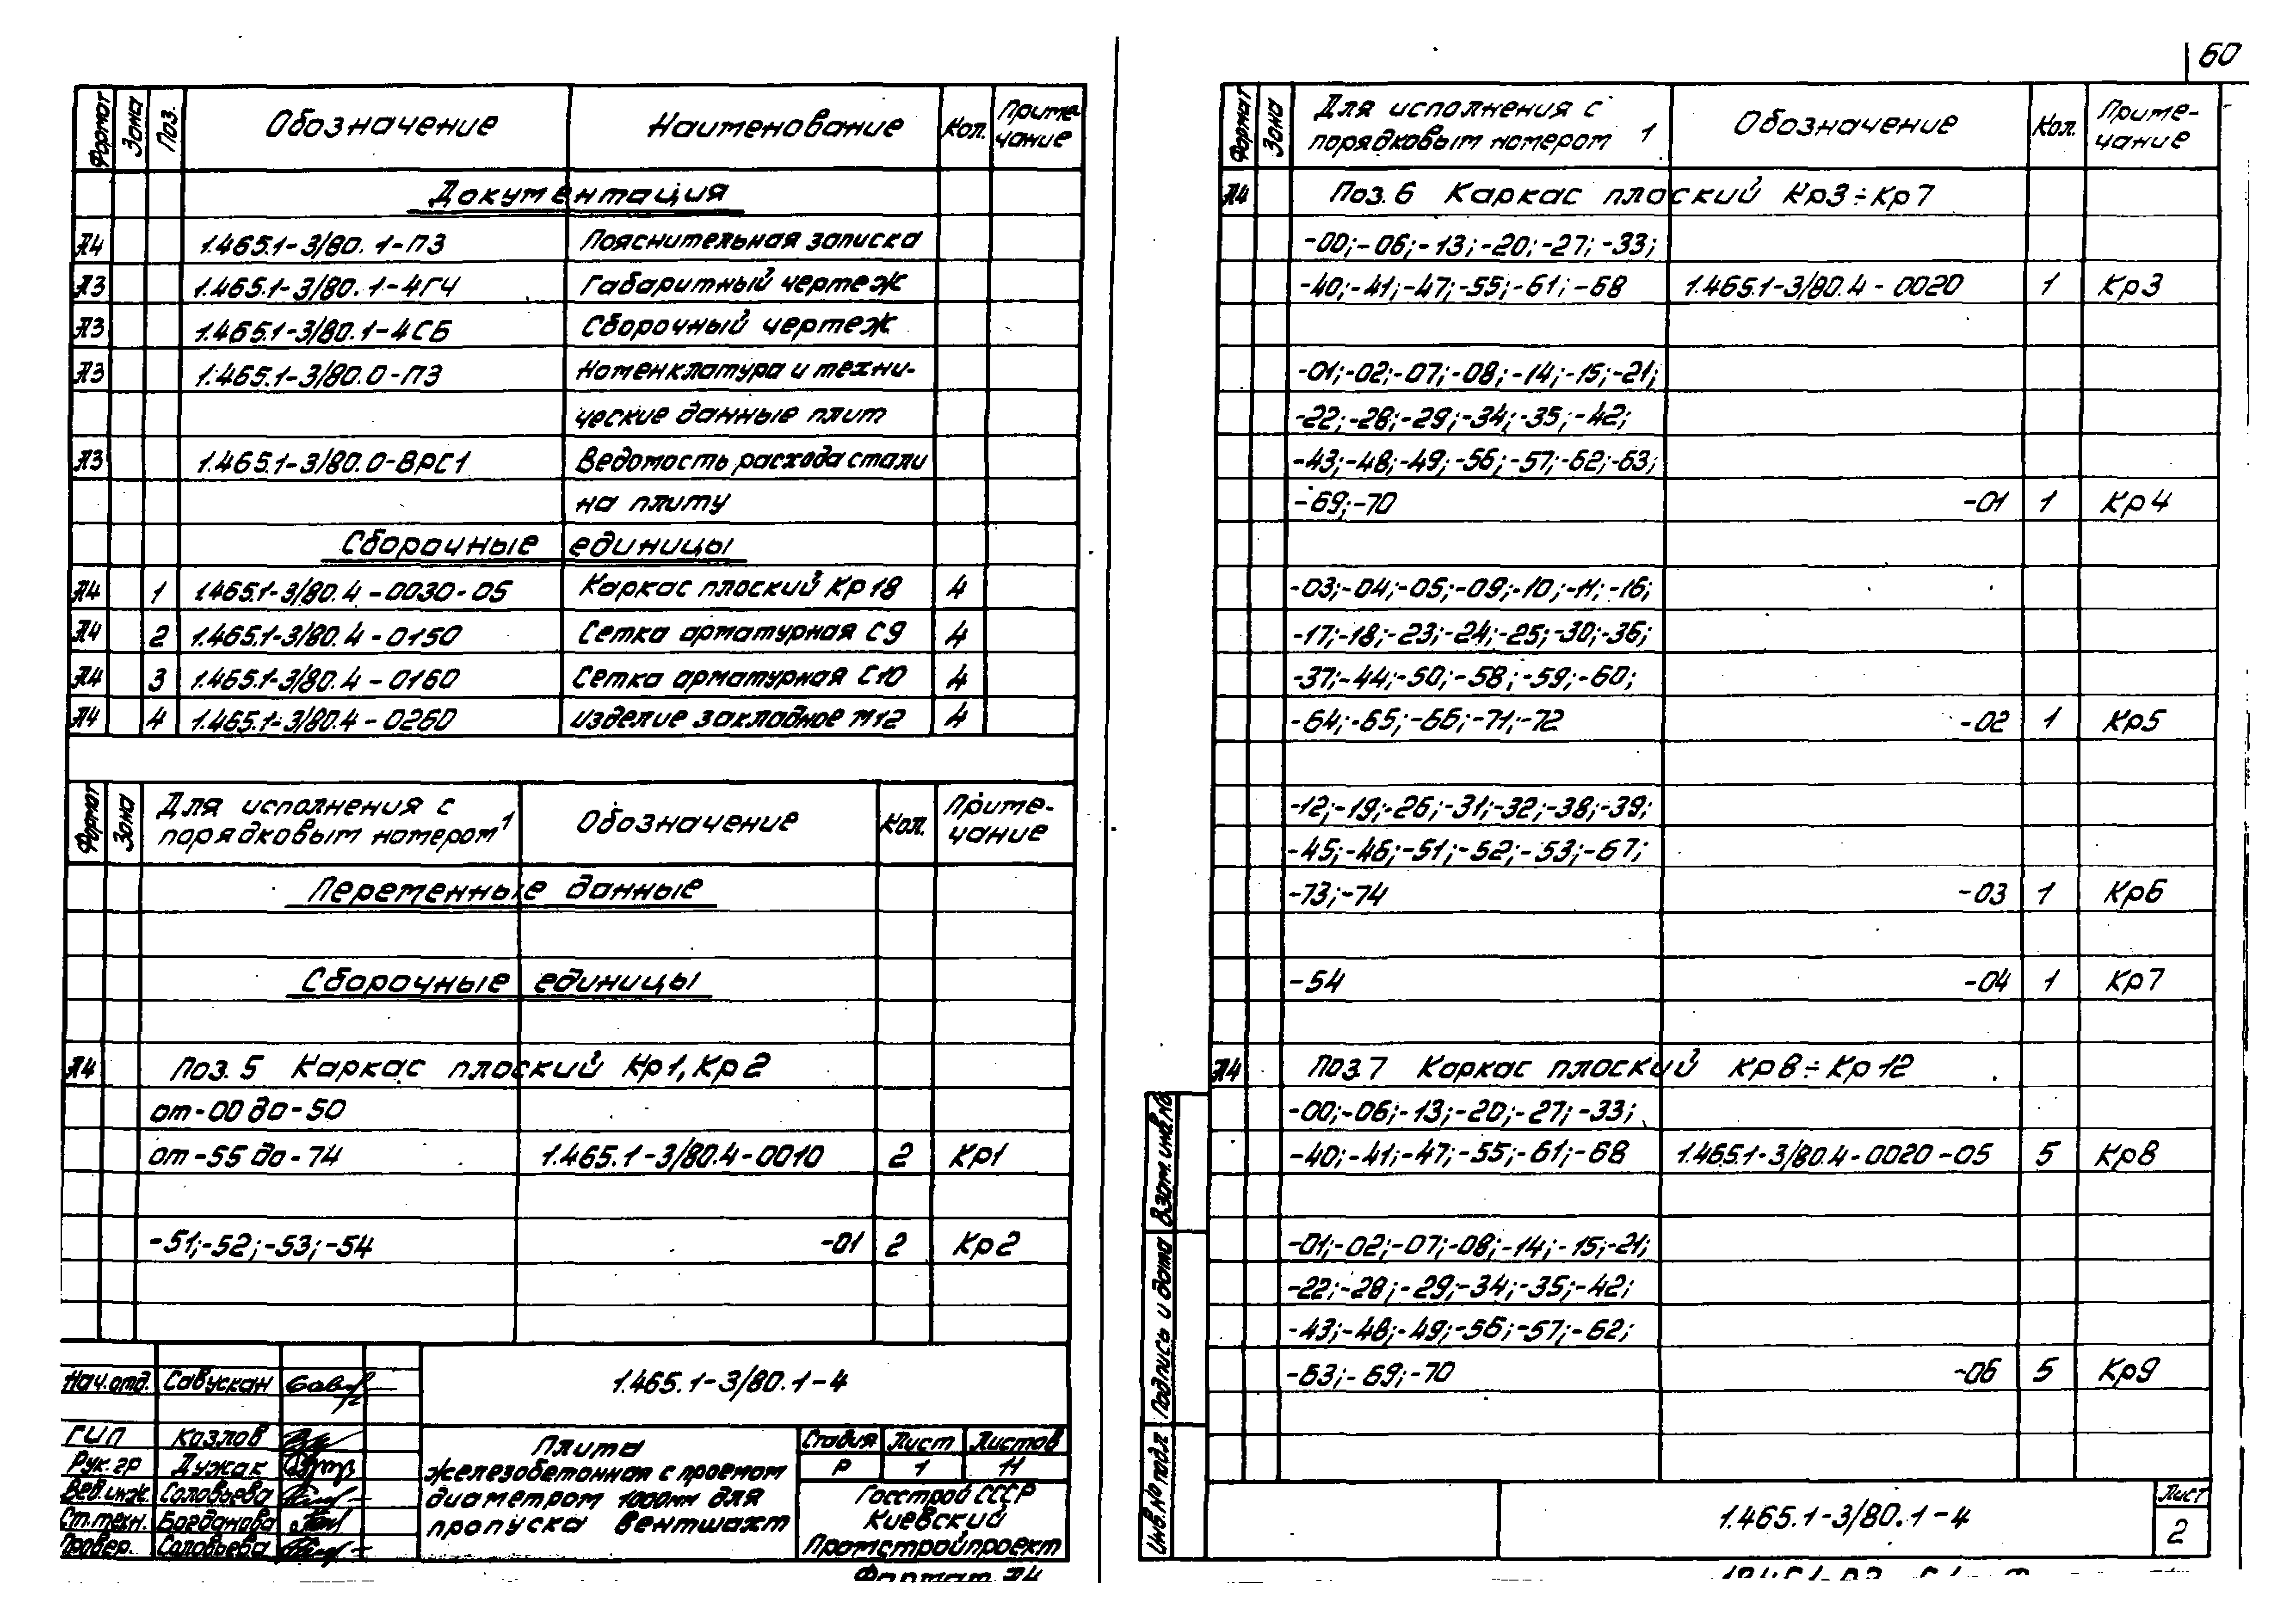 60
Формат Зона Поз. Обозначение Наименование Кол. Примечание
Документация
А4 1.465.1-3/80.1-ПЗ Пояснительная записка
А3 1.465.1-3/80.1-4ГЧ Габаритный чертеж
А3 1.465.1-3/80.1-4СБ Сборочный чертеж
А3 1.465.1-3/80.0-ПЗ Номенклатура и техни-
ческие данные плит
А3 1.465.1-3/80.0-ВРС1 Ведомость расхода стали
на плиту
Сборочные единицы
А4 1 1.465.1-3/80.4-0030-05 Каркас плоский Кр18 4
А4 2 1.465.1-3/80.4-0150 Сетка арматурная С9 4
А4 3 1.465.1-3/80.4-0160 Сетка арматурная С10 4
А4 4 1.465.1-3/80.4-0260 Изделие закладное М12 4
Формат Зона Для исполнения с порядковым номером 1 Обозначение Кол. Приме-чание
Переменные данные
Сборочные единицы
А4 Поз. 5 Каркас плоский Кр1, Кр2
от-00 до-50
от-55 до-74 1.465.1-3/80.4-0010 2 Кр1
-51;-52;-53;-54 -01 2 Кр2
1.465.1-3/80.1-4
Нач.отд. Савускан
ГИП Козлов
Рук.гр Дужак
Вед.инж. Соловьева
Ст.техн. Богданова
Провер. Соловьева
Плита
железобетонная с проемом
диаметром 1000мм для
пропуска вентшахт
Стадия Лист Листов
Р 1 11
Госстрой СССР
Киевский
Промстройпроект
Формат А4
Формат Зона Для исполнения с порядковым номером 1 Обозначение Кол. Приме-чание
А4 Поз. 6 Каркас плоский Кр3÷Кр7
-00;-06;-13;-20;-27;-33;
-40;-41;-47;-55;-61;-68 1.465.1-3/80.4-0020 1 Кр3
-01;-02;-07;-08;-14;-15;-21;
-22;-28;-29;-34;-35;-42;
-43;-48;-49;-56;-57;-62;-63;
-69;-70 -01 1 Кр4
-03;-04;-05;-09;-10;-11;-16;
-17;-18;-23;-24;-25;-30;-36;
-37;-44;-50;-58;-59;-60;
-64;-65;-66;-71;-72 -02 1 Кр5
-12;-19;-26;-31;-32;-38;-39;
-45;-46;-51;-52;-53;-67;
-73;-74 -03 1 Кр6
-54 -04 1 Кр7
А4 Поз.7 Каркас плоский Кр8÷Кр12
-00;-06;-13;-20;-27;-33;
-40;-41;-47;-55;-61;-68 1.465.1-3/80.4-0020-05 5 Кр8
-01;-02;-07;-08;-14;-15;-21;
-22;-28;-29;-34;-35;-42;
-43;-48;-49;-56;-57;-62;
-63;-69;-70 -06 5 Кр9
Взам.инв.№
Подпись и дата
Инв.№ подл
1.465.1-3/80.1-4
Лист
2